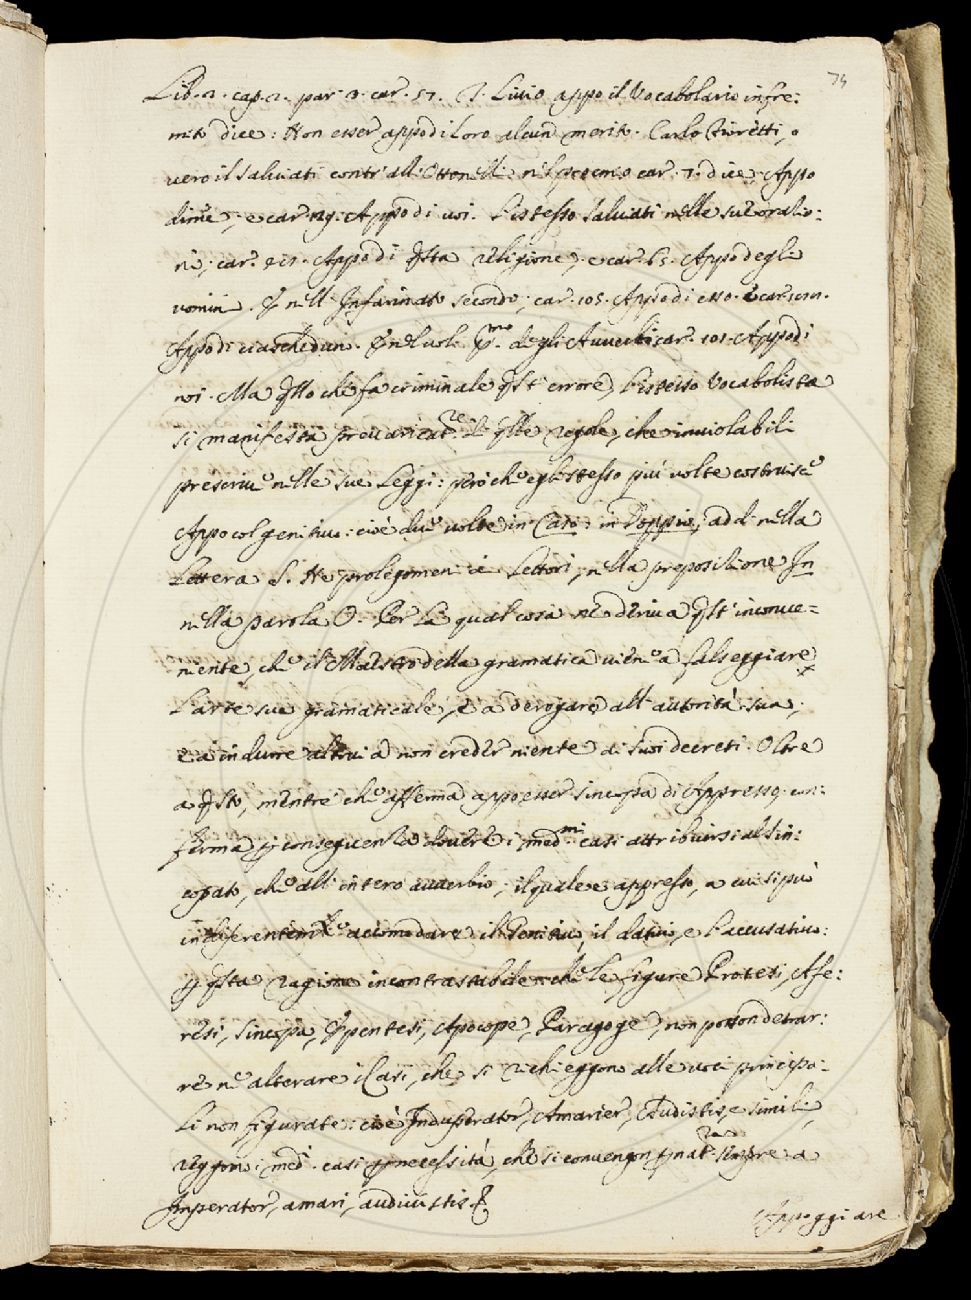 74
Lib. 2. cap. 2. par. 3. car. 57. T. Livio appo il Vocabolario in fre:
mito dice: Non esser appo di Loro alcun merito. Carlo Fioretti, o
vero il Salviati contr' all' Ottonelli nel proemio car. 7. dice: Appo
di me; e car. 129. Appo di voi. L'istesso Salviati nelle sue oratio:
ni, car. Appo di qsta religione, e car. 65. Appo degli
uomini. E nell' Infarinato secondo, car. 105. Appo di esso. E car.
Appo di ciascheduno. E nel vol. pmo. degli Avverti: car. 101. Appo di
noi. Ma qllo che fa criminale qst' errore, l'istesso Vocabolista
si manifesta prevaricatre di qlle regole, che inviolabili
prescrive nelle sue Leggi: però che egli stesso più volte costruisce
Appo col genitivo: cioè due volte in Caso: in Doppio, add. nella
Lettera S. Ne prolegomeni a' Lettori, nella prepositione In
nella parola O. Per La qual cosa ne deriva qst' inconve=
niente, che il Maestro della gramatica viene a falseggiare
L'arte sua gramaticale, e a derogare all' autorità sua,
e a indurre altrui a non creder niente a' suoi decreti. Oltre
a qsto, mentre che afferma appo esser sincopa di Appresso, con:
ferma p conseguenza dovere i medmi casi attribuirsi al sin:
copato, che all' intero avverbio, il quale e appresso, a cui si può
indiferentemte accomodare il Genitivo, il dativo, e l'accusativo:
p qsta ragione incontrastabile che le figure Protesi, Afe:
resi, Sincopa, Epentesi, Apocope, Paragoge, non posson detrar:
re ne alterare i Casi, che si richieggono alle voci principa:
Li non figurate: cioè Induperator, Amarier, Audistis, e simili,
reggono i medi casi p necessità, che si convengon p natra sempre a
Imperator, amari, audivistis &
Appoggiare